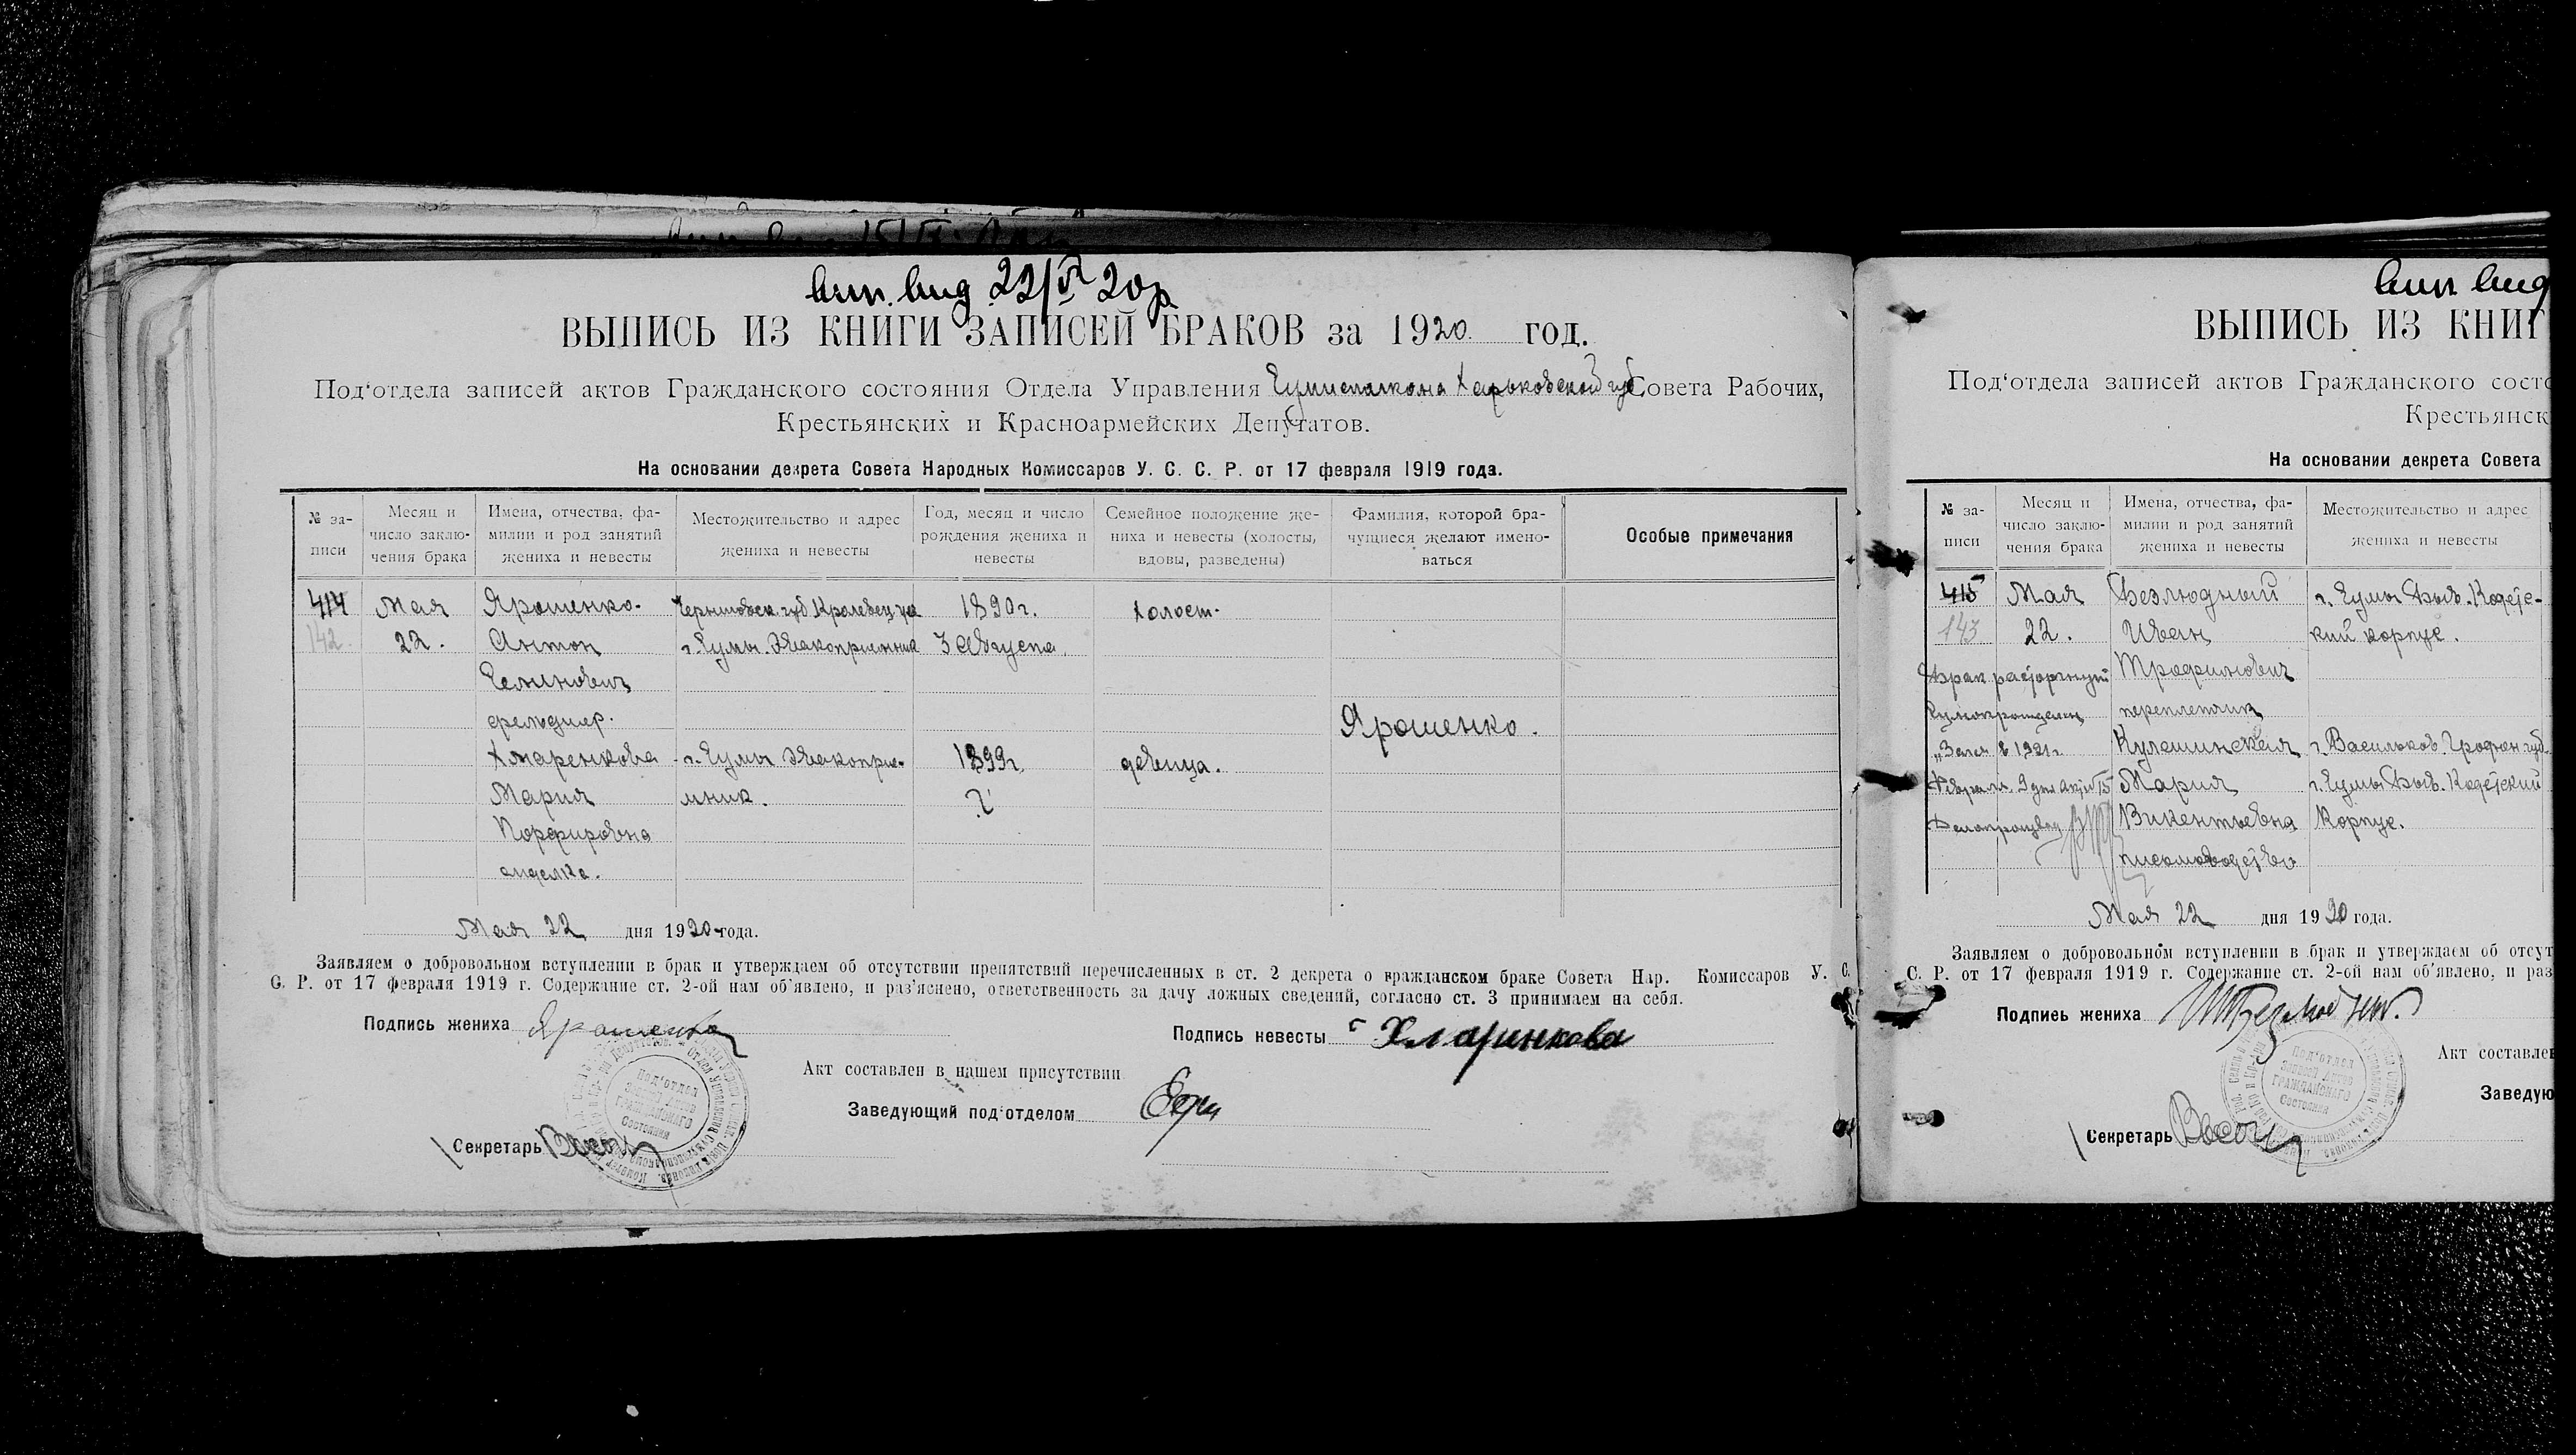 вып. выд 22/V 20 г
ВЫПИСЬ ИЗ КНИГИ ЗАПИСЕЙ БРАКОВ за 1920 год.
Под‘отдела записей актов Гражданского состояния Отдела Управления Сумисполкома Харьковской губ Совета Рабочих,
Крестьянских и Красноармейских Депутатов.
На основании декрета Совета Народных Комиссаров У. С. С. Р. от 17 февраля 1919 года.
№ за-
писи
Месяц и
число заклю-
чения брака
Имена, отчества, фа-
милии и род занятий
жениха и невесты
Местожительство и адрес
жениха и невесты
Год, месяц и число
рождения жениха и
невесты
Семейное положение же-
ниха и невесты (холосты,
вдовы, разведены)
Фамилия, которой бра-
чущиеся желают имено-
ваться
Особые примечания
414
142.
Мая
22.
Ярошенко.
Антон
Семенович
фельдшер.
Хмаренкова
Мария
Порфировна
сиделка.
Черниговск. губ. Кролевец. уез
г. Сумы. Эвакоприемник
г. Сумы Эвакоприе-
мник.
1890 г.
3 Августа.
1899 г.
?
холост.
девица.
Ярошенко.
Мая 22 дня 1920 года.
Заявляем о добровольном вступлении в брак и утверждаем об отсутствии препятствий перечисленных в ст. 2 декрета о гражданском браке Совета Нар. Комиссаров У. С.
С. Р. от 17 февраля 1919 г. Содержание ст. 2-ой нам об‘явлено, и раз‘яснено, ответственность за дачу ложных сведений, согласно ст. 3 принимаем на себя.
Подпись жениха Ярошенко
Подпись невесты Хмаринкова
Акт составлен в нашем присутствии
Заведующий под‘отделом
Секретарь
Под‘отдел
Записей Актов
ГРАЖДАНСКОГО
Состояния
вып выд
ВЫПИСЬ ИЗ КНИГ
Под‘отдела записей актов Гражданского состо
Крестьянск
На основании декрета Совета
№ за-
писи
Месяц и
число заклю-
чения брака
Имена, отчества, фа-
милии и род занятий
жениха и невесты
Местожительство и адрес
жениха и невесты
415
143
Мая
22.
Брак расторгнут
Безлюдный
Иван
Трофимович
переплетчик
Кулешинская
Мария
Викентьевна
письмоводство
г. Сумы Быв. Кадетс-
кий корпус.
г. Васильков. Гроднен губ.
г. Сумы Быв. Кадетский
Корпус.
Мая 22 дня 1920 года.
Заявляем о добровольном вступлении в брак и утверждаем об отсут
С. Р. от 17 февраля 1919 г. Содержание ст. 2-ой нам об‘явлено, и раз
Подпись жениха
Акт составлен
Заведую
Секретарь
Под‘отдел
Записей Актов
ГРАЖДАНСКОГО
Состояния